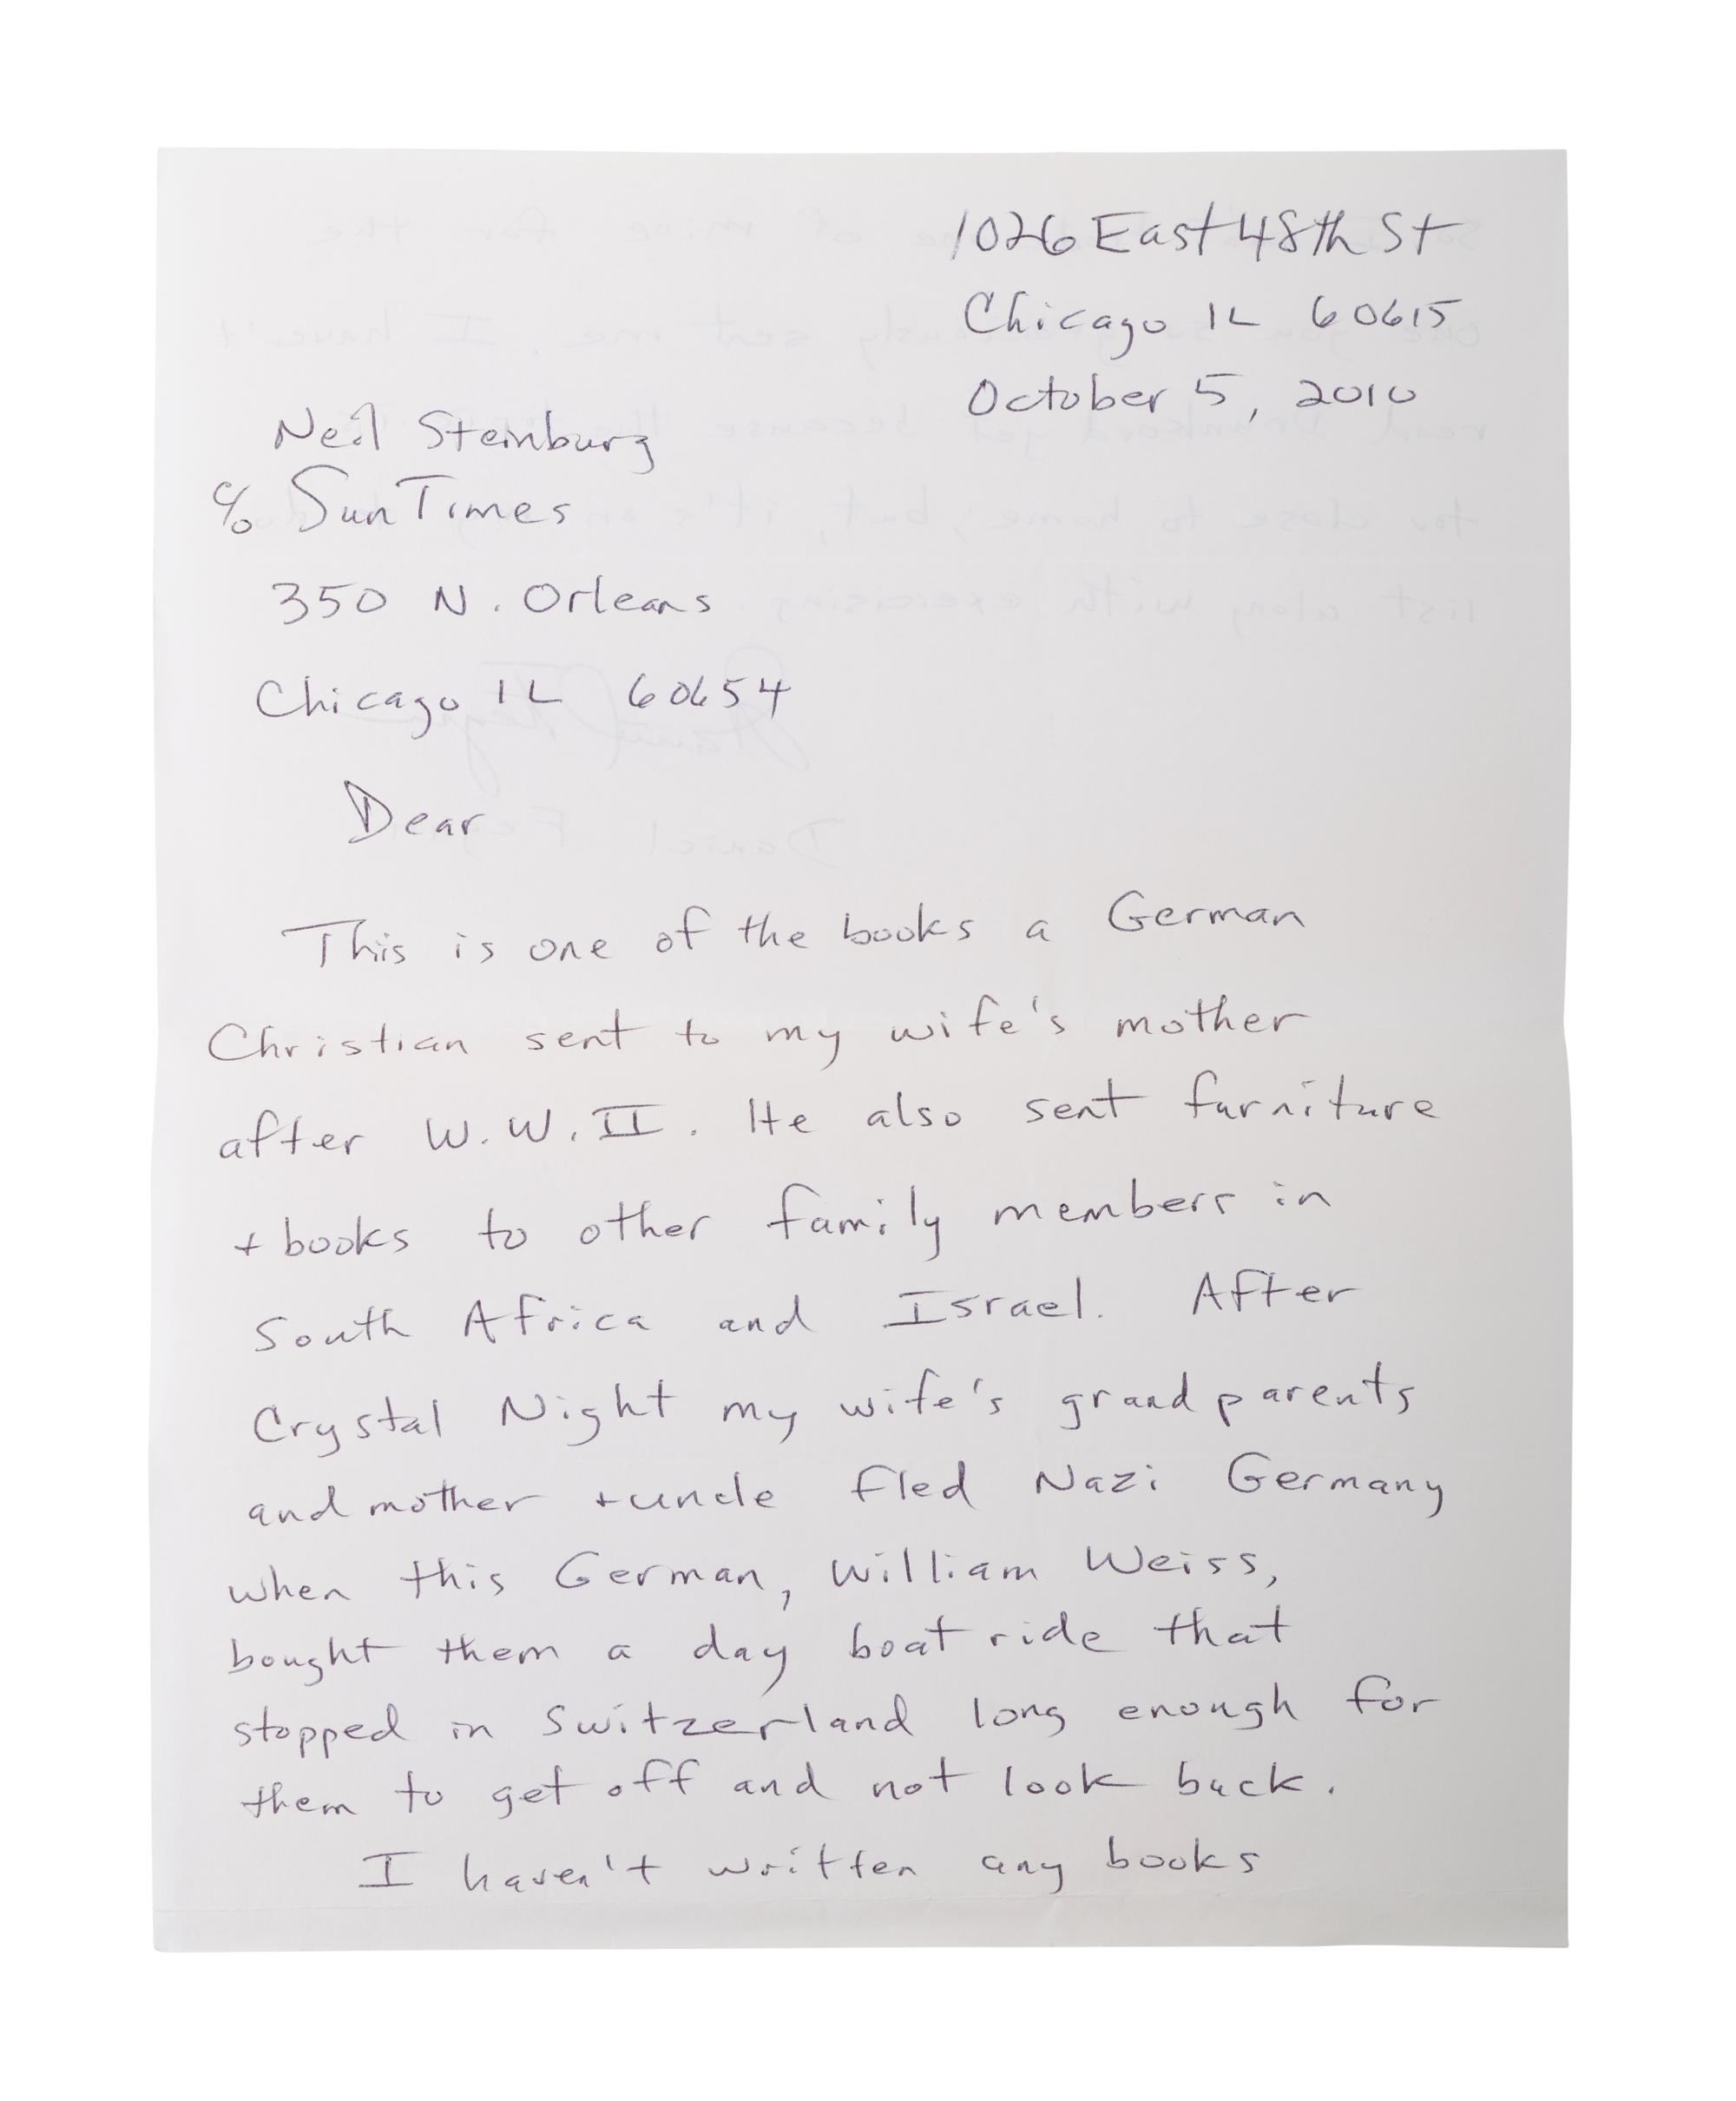 1026 East 48th St
Chicago IL 60615
October 5, 2010
Neil Steinburg
c/o Sun Times
350 N. Orleans
Chicago IL 60654
Dear
This is one of the books a German
Christian sent to my wife's mother
after W.W.II. He also sent furniture
+ books to other family members in
South Africa and Israel. After
Crystal Night my wife's grandparents
and mother + uncle fled Nazi Germany
when this German, William Weiss,
bought them a day boat ride that
stopped in Switzerland long enough for
them to get off and not look back.
I haven't written any books